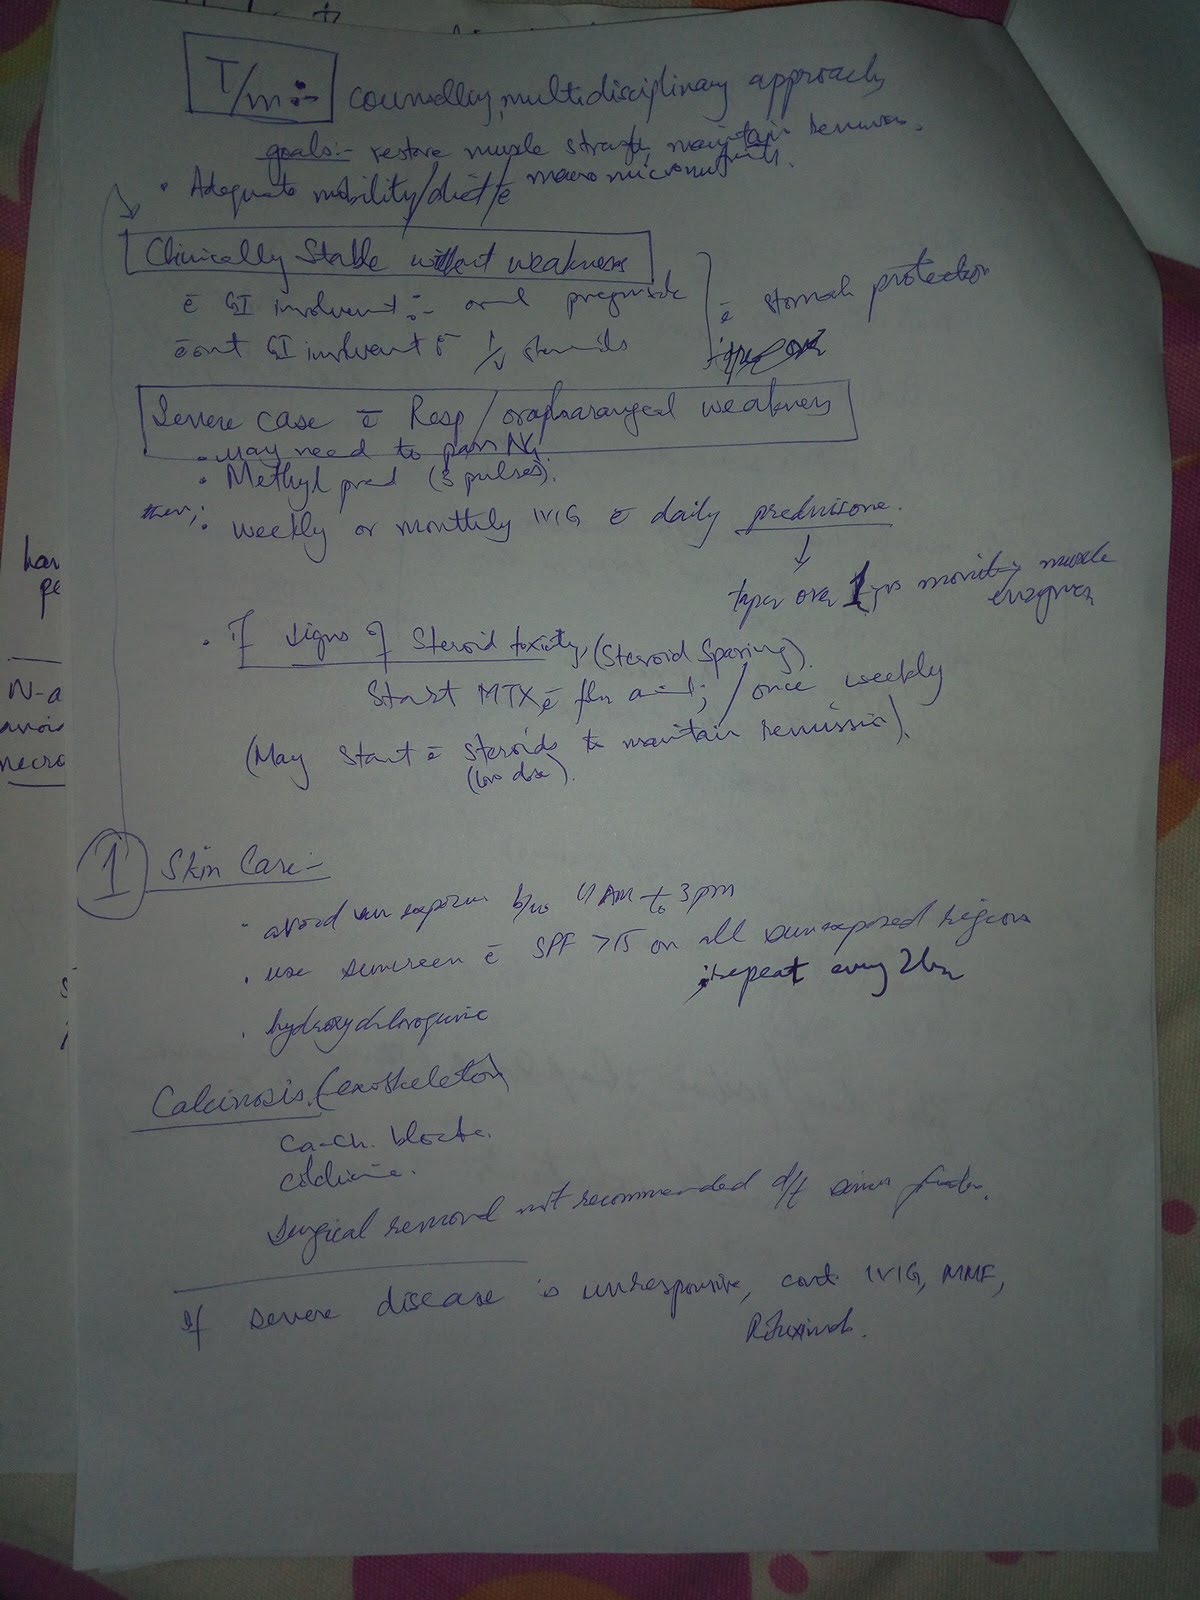 T/m:- counselling, multidisciplinary approach
goals:- restore muscle strength, maintain remission.
• Adequate mobility/diet/c̄ macro micronutrients.
Clinically Stable without weakness
c̄ GI involvent:- oral
c̄out GI involvent c̄ I/V steroids
c̄ stomach protection
Severe case c̄ Resp/oropharangeal weakness
• May need to pass NG.
• Methyl pred (3 pulses).
then;• weekly or monthly IVIG c̄ daily prednisone.
↓
taper over 1 yrs monitoring muscle
enzymes
• If signs of Steroid toxicity, (Steroid Sparing).
Start MTX c̄ / once weekly
(May start c̄ steroids to maintain remission).
(low dose).
1 Skin Care:-
• avoid sun exposure b/w AM to 3 pm
• use sunscreen c̄ SPF >15 on all sun exposed regions
; repeat every 2hr
• hydroxychloroquine
Calcinosis (exoskeleton)
Ca-Ch. blocke.
colchicine.
Surgical removal not recommended d/t sinus
If severe disease is unresponsive, cont. IVIG, MMF,
Rituximab.
har
pe
N-a
avoi
necro